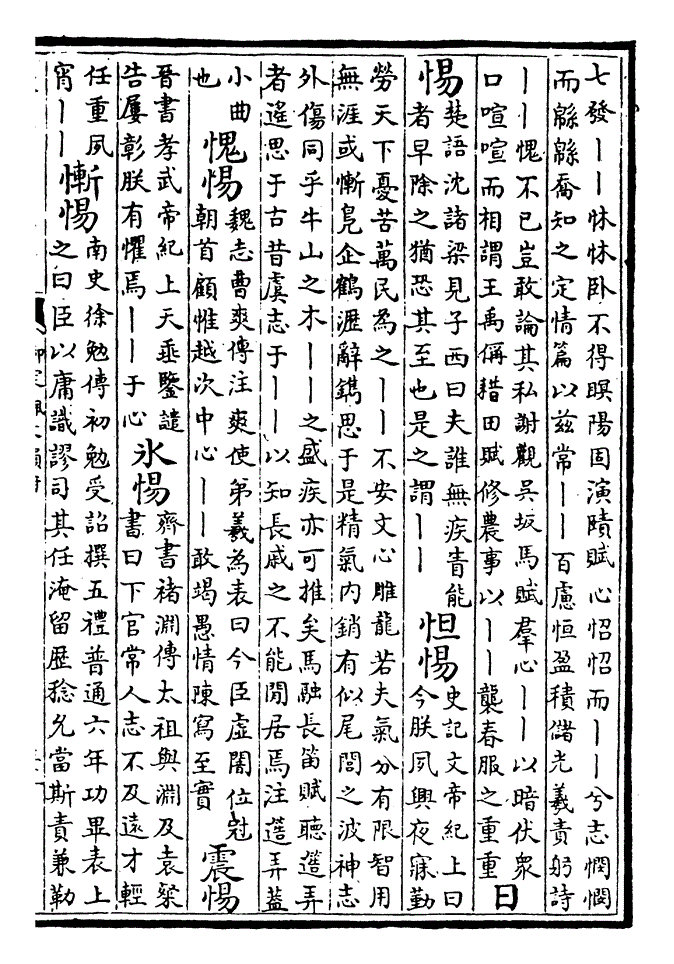 七發丨丨怵怵卧不得瞑陽固演賾賦心怊怊而丨丨兮志憫憫
而緜緜喬知之定情篇以兹常丨丨百慮恒盈積儲光羲責躬詩
丨丨愧不已豈敢論其私謝觀吳坂馬賦羣心丨丨以暗伏衆
口喧喧而相謂王禹偁耤田賦修農事以丨丨襲春服之重重
日
惕
楚語沈諸梁見子西曰夫誰無疾眚能
者早除之猶恐其至也是之謂丨丨
怛惕
史記文帝紀上曰
今朕夙興夜寐勤
勞天下憂苦萬民為之丨丨不安文心雕龍若夫氣分有限智用
無涯或慚鳧企鶴瀝辭鐫思于是精氣內銷有似尾閭之波神志
外傷同乎牛山之木丨丨之盛疾亦可推矣馬融長笛賦聽簉弄
者遙思于古昔虞志于丨丨以知長戚之不能閒居焉注簉弄蓋
小曲
也
愧惕
魏志曹爽傳注爽使弟羲為表曰今臣虛闇位冠
朝首顧惟越次中心丨丨敢竭愚情陳寫至實
震惕
晉書孝武帝紀上天垂鑒譴
告屢彰朕有懼焉丨丨于心
氷惕
齊書褚淵傳太祖與淵及袁粲
書曰下官常人志不及遠才輕
任重夙
宵丨丨
慚惕
南史徐勉傳初勉受詔撰五禮普通六年功畢表上
之曰臣以庸識謬司其任淹留歷稔允當斯責兼勒